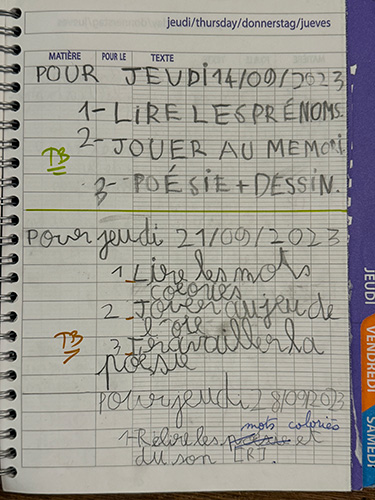 jeudi/thursday/donnerstag/jueves
MATIÈRE POUR LE TEXTE
POUR JEUDI 14/09/2023
1- LIRE LES PRÉNOMS.
2- JOUER AU MEMORI
TB
3- POÉSIE + DESSIN.
pour jeudi 21/09/2023
1_Lire les mots
coloriés
2_Jouer au jeu de
l'oie
TB
3_Travailler la
poésie
pour jeudi 28/09/2023
mots coloriés
1-Relire les et
du son [R].
JEUDI
VENDREDI
SAMEDI